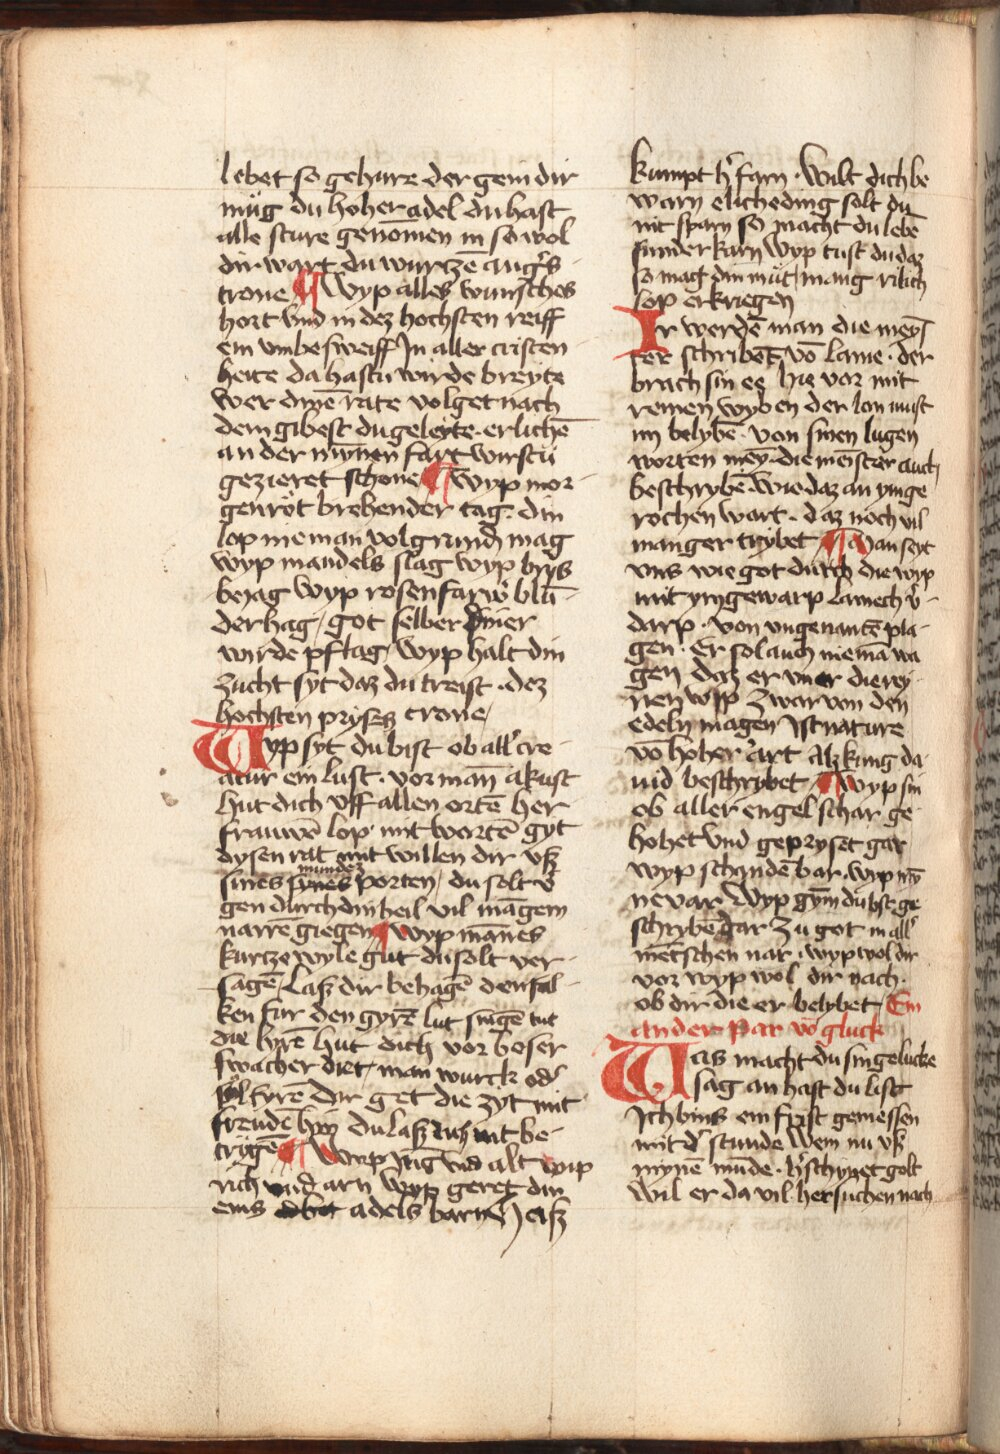 lebet so gehure der gem dir
mug du hoher adel du hast
alle sture genōmen in so wol
dir wart du wurtzē
trone ¶ Wyp alles wunsches
hort vnd in dez hochsten reiff
ein vmbesweiff In aller cristen
heite da hastu wirde breyte
wer dinē rate volget nach
dem gibest du geleyte erlichē
an der mȳnen fart wirstu
gezieret schone ¶ Wyp mor
genröt brehender tag din
lop nieman vol grunden mag
wyp mandels slag wyp brÿs
beiag wyp rosenfarwͤ blū
der hag / got selber diner
wirde pflag / wyp halt din
zucht syt daz du treist dez
hochsten pryses crone /
Wyp syt du bist ob allͤ cre
atur ein lust vor man akust
hut dich vff allen ortē her
frauwē lop mit wortē gyt
dysen rat mit willen dir vß
sines mundez porten / du solt vͤ
gen durch din heil vil mangem
narrē giegen ¶ Wyp mānes
kurtze wyle gut du solt ver
sagē / laß dir behagē den fal
ken fur den gyrē lut singē tut
die lyrē hut dich vor boser
swacher diet / man wurck odͤ
fyrē dir get die zyt mit
freudē hin du laß dich nit be
trigē ¶ Wyp jūg vnd alt wip
rich vnd arn wyp geret din
eins adels barnē ) eiß
kumpt hͤ farn Wilt dich be
warn elicheding solt du
nit sparn so macht du lebē
sunder karn wyp tust du daz
so mag din mut / manig rilich
lop erkriegen
Ir werdē man die mey
ter schribent vō lame der
brach sin ee hie vor mit
reinen wyben der lon must
im belybē von sinen lugen
worten mey die meister auch
beschrybē wie daz an ym ge
rochen wart daz noch vil
manger trybet ¶ Man seyt
vns wie got durch die wyp
mit ym gewarp lamech vͤ
darp von vngenantē pla
gen Er sol auch niemā wa
gen daz er vner die rey
nen wyp zwar von den
edeln magen Ist nature
vō hoher art Alz kung da
uid beschrybet ¶ Wyp sin
ob aller engel schar ge
hohet vnd gepryset gar
wyp schandē bar wyp my
ne var Wyp gym du bist ge
schrybē gar zu got in allͤ
mētschen nar wyp wol dir
vor wyp wol dir nach
ob dir die er belybet / Ein
ander par vō gluck
Was macht du sin gelucke
sag an hast du list
Ich bins ein frist gemessen
mit dͤ stunde wem nu vß
mynē munde hͤ schynet golt
wil er da vil her suchen nach